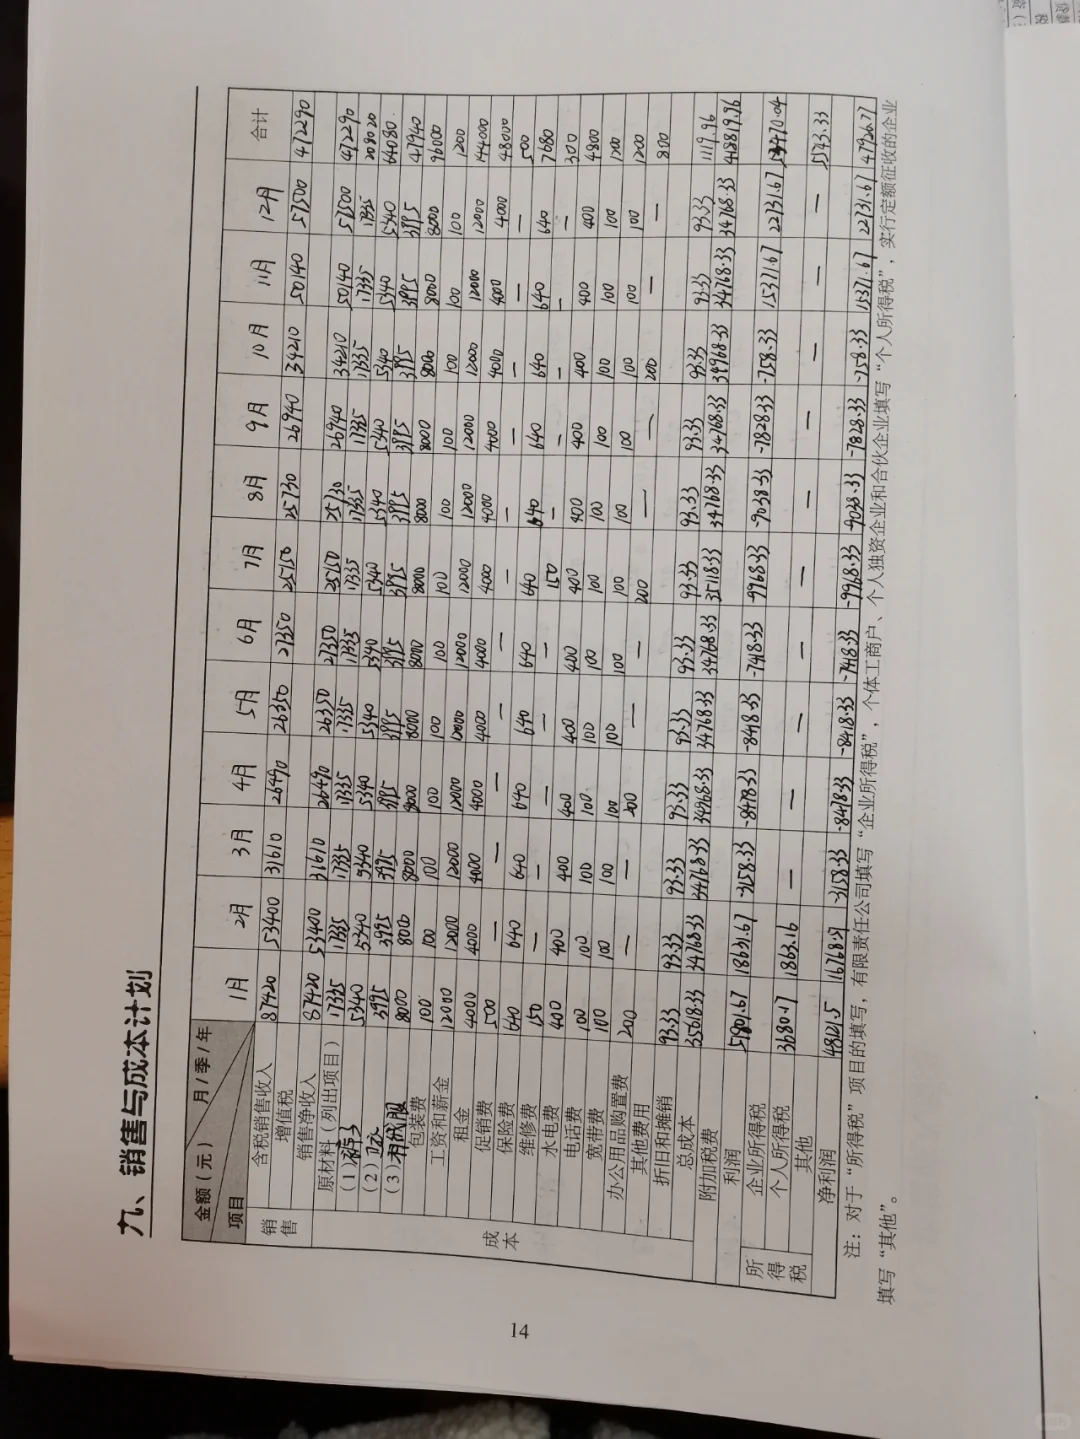 九、销售与成本计划
金额（元） 月/季/年 项目 1月 2月 3月 4月 5月 6月 7月 8月 9月 10月 11月 12月 合计
销售 含税销售收入 87420 53400 31610 26490 26350 27350 25750 25730 26940 34210 50140 57500 472290
增值税
销售净收入 87420 53400 31610 26490 26350 27350 25750 25730 26940 34210 50140 57500 472290
成本 原材料（列出项目） 17335 17335 17335 17335 17335 17335 17335 17335 17335 17335 17335 17335 208020
(1)裤子 5340 5340 5340 5340 5340 5340 5340 5340 5340 5340 5340 5340 64080
(2) 3995 3995 3995 3995 3995 3995 3995 3995 3995 3995 3995 3995 47940
(3) 8000 8000 8000 8000 8000 8000 8000 8000 8000 8000 8000 8000 96000
包装费 100 100 100 100 100 100 100 100 100 100 100 100 1200
工资和薪金 12000 12000 12000 12000 12000 12000 12000 12000 12000 12000 12000 12000 144000
租金 4000 4000 4000 4000 4000 4000 4000 4000 4000 4000 4000 4000 48000
促销费 500 — — — — — — — — — — — 500
保险费 640 640 640 640 640 640 640 640 640 640 640 640 7680
维修费 150 — — — — — 150 — — — — — 300
水电费 400 400 400 400 400 400 400 400 400 400 400 400 4800
电话费 100 100 100 100 100 100 100 100 100 100 100 100 1200
宽带费 100 100 100 100 100 100 100 100 100 100 100 100 1200
办公用品购置费 200 — — 200 — — 200 — — 200 — — 800
其他费用
折旧和摊销 93.33 93.33 93.33 93.33 93.33 93.33 93.33 93.33 93.33 93.33 93.33 93.33 1119.96
总成本 35618.33 34768.33 34768.33 34968.33 34768.33 34768.33 35118.33 34768.33 34768.33 34968.33 34768.33 34768.33 418819.96
附加税费
利润 51801.67 18631.67 -3158.33 -8478.33 -8418.33 -7418.33 -9968.33 -9038.33 -7828.33 -758.33 15371.67 22731.67 53470.04
所得税 企业所得税
个人所得税 3680.17 1863.16 — — — — — — — — — — 5543.33
其他
净利润 48121.5 16768.51 -3158.33 -8478.33 -8418.33 -7418.33 -9968.33 -9038.33 -7828.33 -758.33 15371.67 22731.67 47926.71
注：对于“所得税”项目的填写，有限责任公司填写“企业所得税”，个体工商户、个人独资企业和合伙企业填写“个人所得税”，实行定额征收的企业
填写“其他”。
14